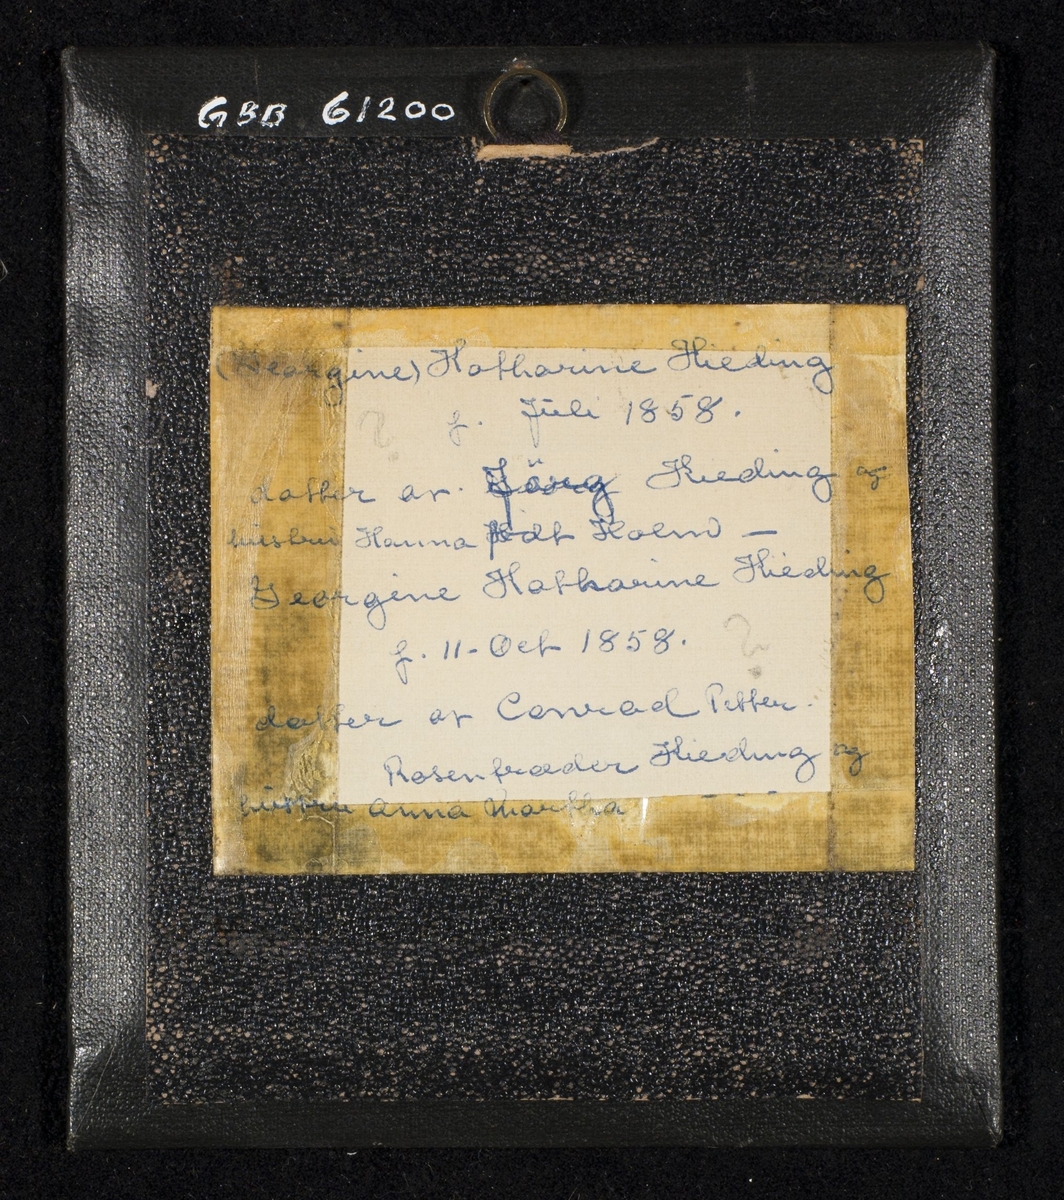 GBB 61200
(Georgine) Katharine Kieding
f. Juli 1858.
?
datter av. Jörg Kieding og
hustru Hanna født Holm —
Georgine Katharine Kieding
f. 11-Oct 1858.
?
datter av Conrad Petter.
Rosenkræder Kieding og
hustru Anna Martha